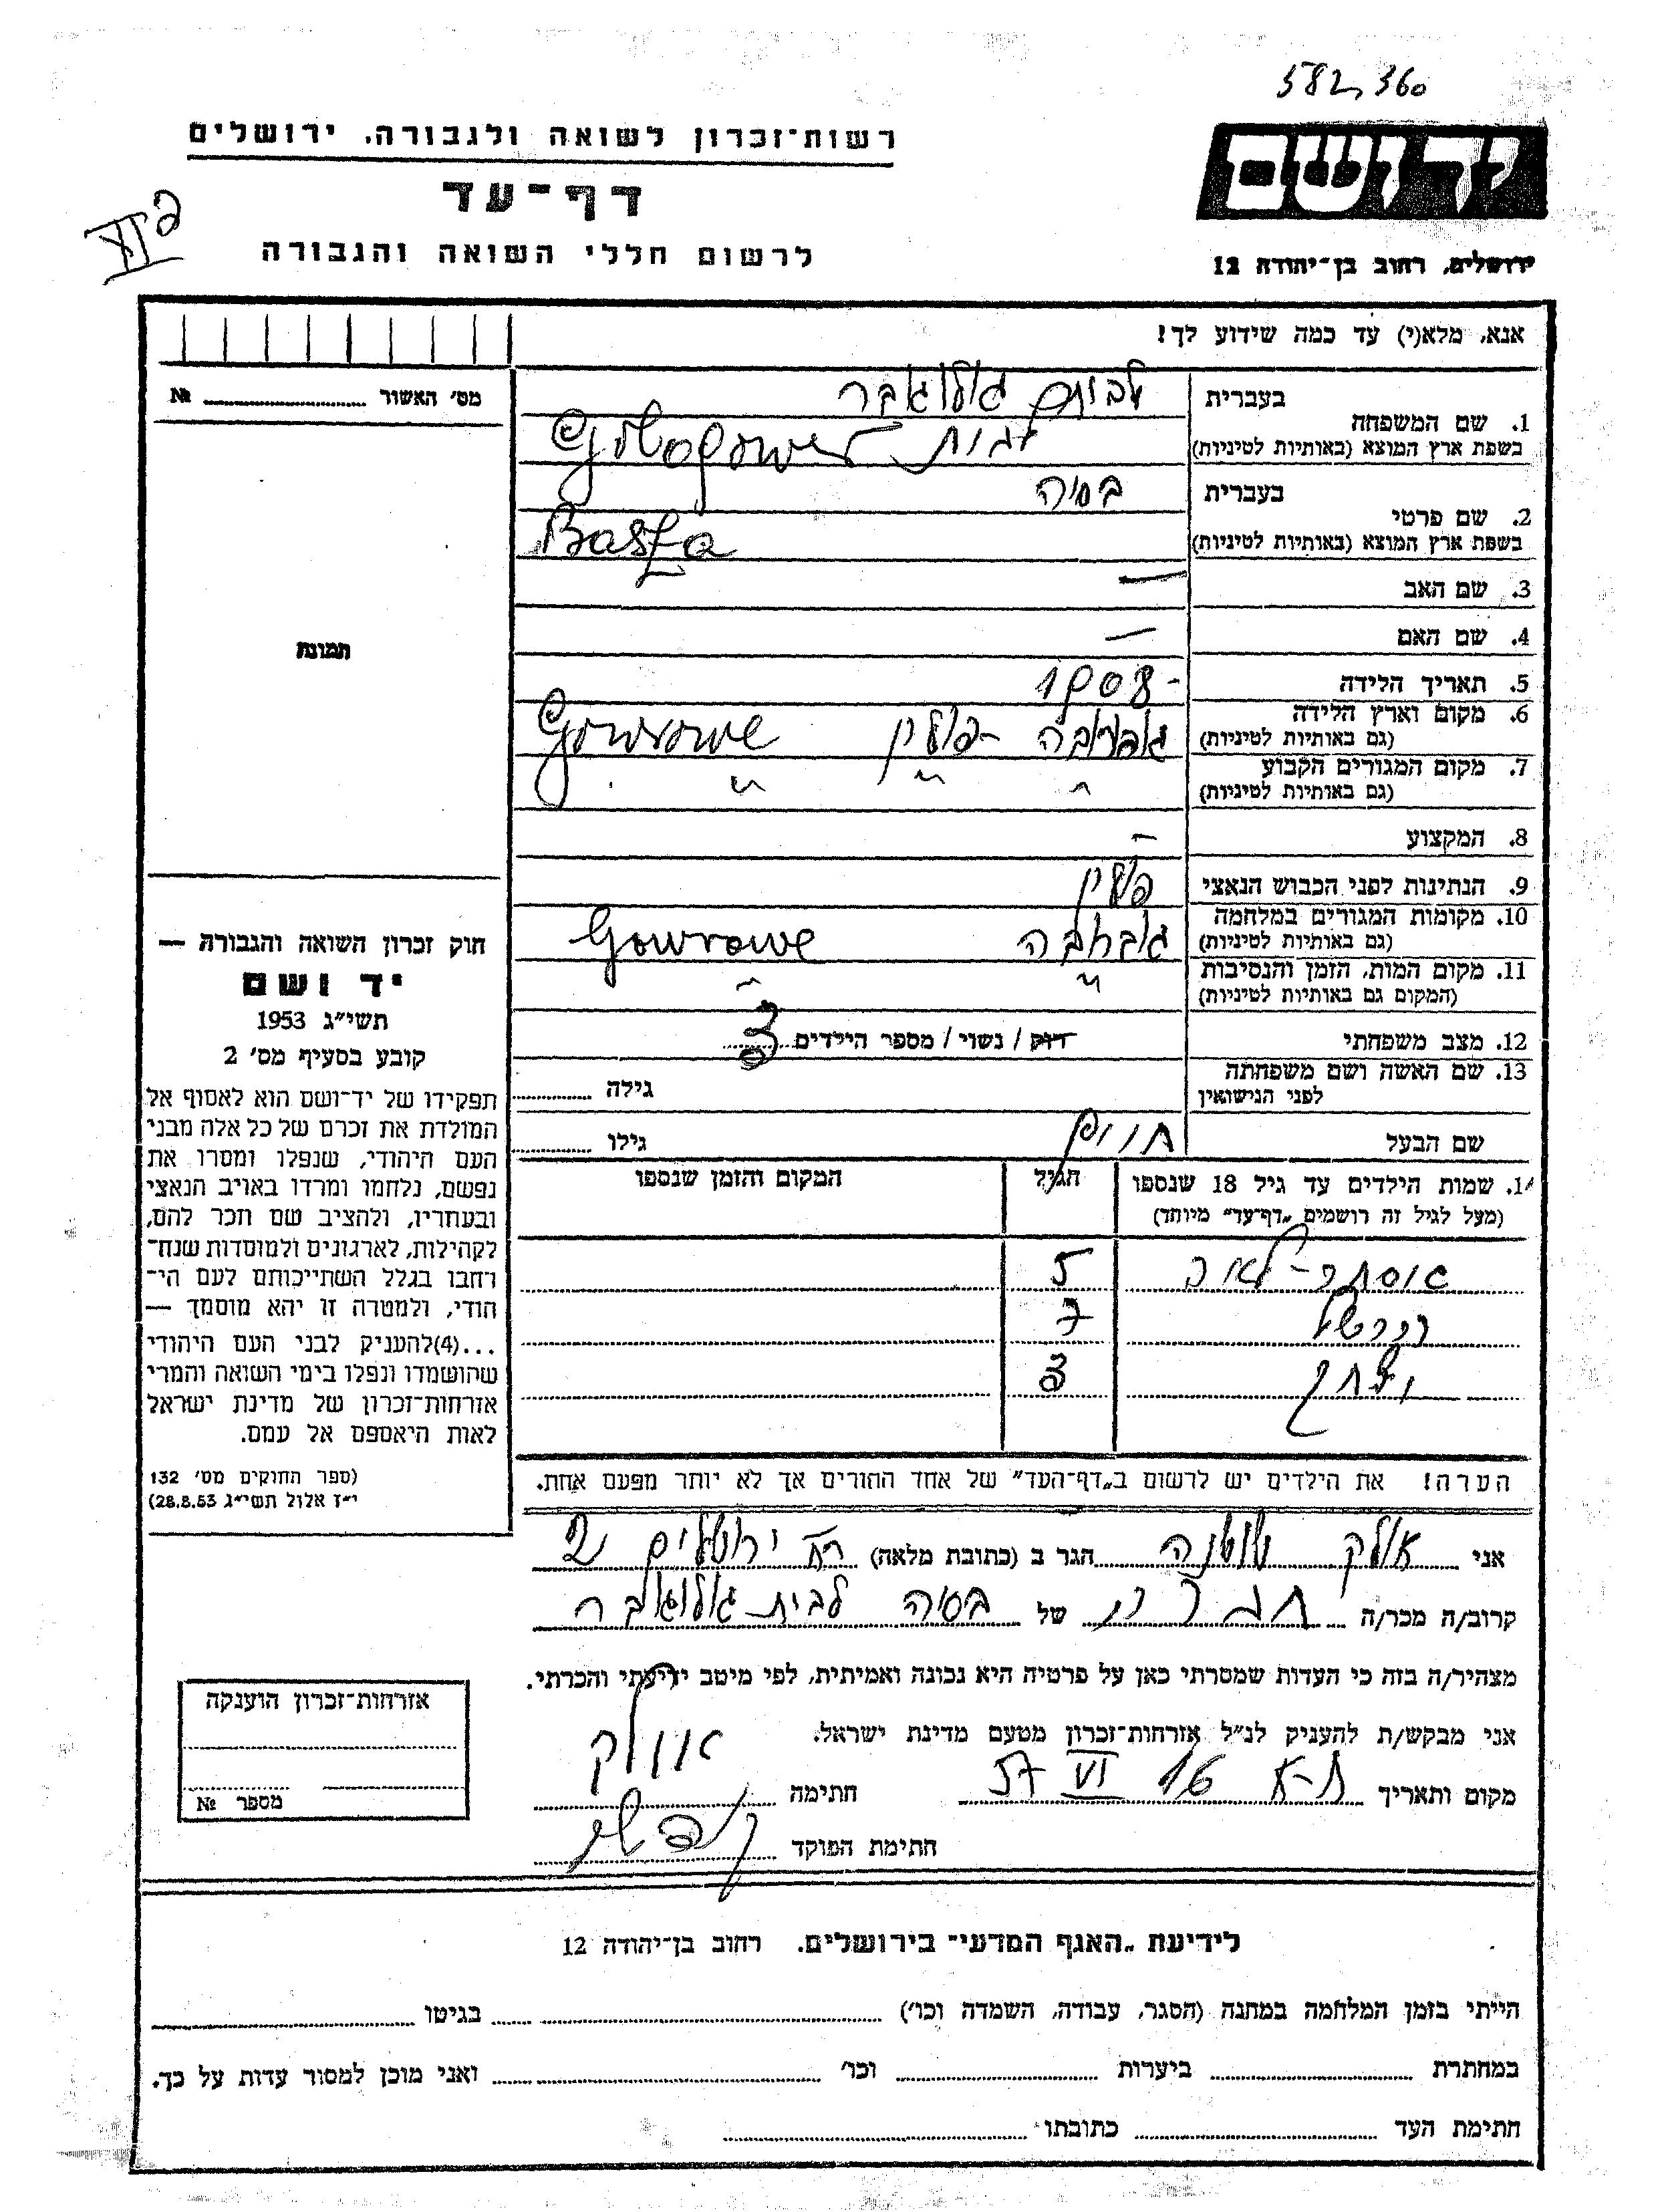 582,360
רשות־זכרון לשואה ולגבורה. ירושלים
יד ושם
דף־עד
לרשום חללי השואה והגבורה
ירושלים, רחוב בן־יהודה 12
אנא, מלא(י) עד כמה שידוע לך!
מס׳ האשור № 
1. שם המשפחה
בעברית
בשפת ארץ המוצא (באותיות לטיניות)
2. שם פרטי
בעברית בסיה
בשפת ארץ המוצא (באותיות לטיניות) Basia
3. שם האב —
4. שם האם —
תמונה
5. תאריך הלידה 1908-
6. מקום וארץ הלידה
(גם באותיות לטיניות) פולין Goworowe
7. מקום המגורים הקבוע
(גם באותיות לטיניות) " " "
8. המקצוע —
9. הנתינות לפני הכבוש הנאצי פולין
10. מקומות המגורים במלחמה
(גם באותיות לטיניות) Goworowe
11. מקום המות, הזמן והנסיבות
(המקום גם באותיות לטיניות) " "
12. מצב משפחתי רוק / נשוי / מספר הילדים 3
13. שם האשה ושם משפחתה
לפני הנישואין
גילה
שם הבעל חיים גילו
14. שמות הילדים עד גיל 18 שנספו הגיל המקום והזמן שנספו
(מעל לגיל זה רושמים „דף־עד״ מיוחד)
5
הרשל 7
יצחק 3
הערה! את הילדים יש לרשום ב„דף־העד״ של אחד ההורים אך לא יותר מפעם אחת.
חוק זכרון השואה והגבורה —
יד ושם
תשי״ג 1953
קובע בסעיף מס׳ 2
תפקידו של יד־ושם הוא לאסוף אל
המולדת את זכרם של כל אלה מבני
העם היהודי, שנפלו ומסרו את
נפשם, נלחמו ומרדו באויב הנאצי
ובעוזריו, ולהציב שם וזכר להם,
לקהילות, לארגונים ולמוסדות שנח־
רבו בגלל השתייכותם לעם הי־
הודי, ולמטרה זו יהא מוסמך —
...(4)להעניק לבני העם היהודי
שהושמדו ונפלו בימי השואה והמרי
אזרחות־זכרון של מדינת ישראל
לאות היאספם אל עמם.
(ספר החוקים מס׳ 132
י״ז אלול תשי״ג 28.8.53)
אני שושנה הגר ב (כתובת מלאה) ירושלים
קרוב/ה מכר/ה של בסיה לבית
מצהיר/ה בזה כי העדות שמסרתי כאן על פרטיה היא נכונה ואמיתית, לפי מיטב ידיעתי והכרתי.
אני מבקש/ת להעניק לנ״ל אזרחות־זכרון מטעם מדינת ישראל.
מקום ותאריך ת-א 16 VI 57 חתימה
חתימת הפוקד
אזרחות־זכרון הוענקה
מספר №
לידיעת „האגף המדעי״ בירושלים. רחוב בן־יהודה 12
הייתי בזמן המלחמה במחנה (הסגר, עבודה, השמדה וכו׳) בגיטו
במחתרת ביערות וכו׳ ואני מוכן למסור עדות על כך.
חתימת העד כתובתו